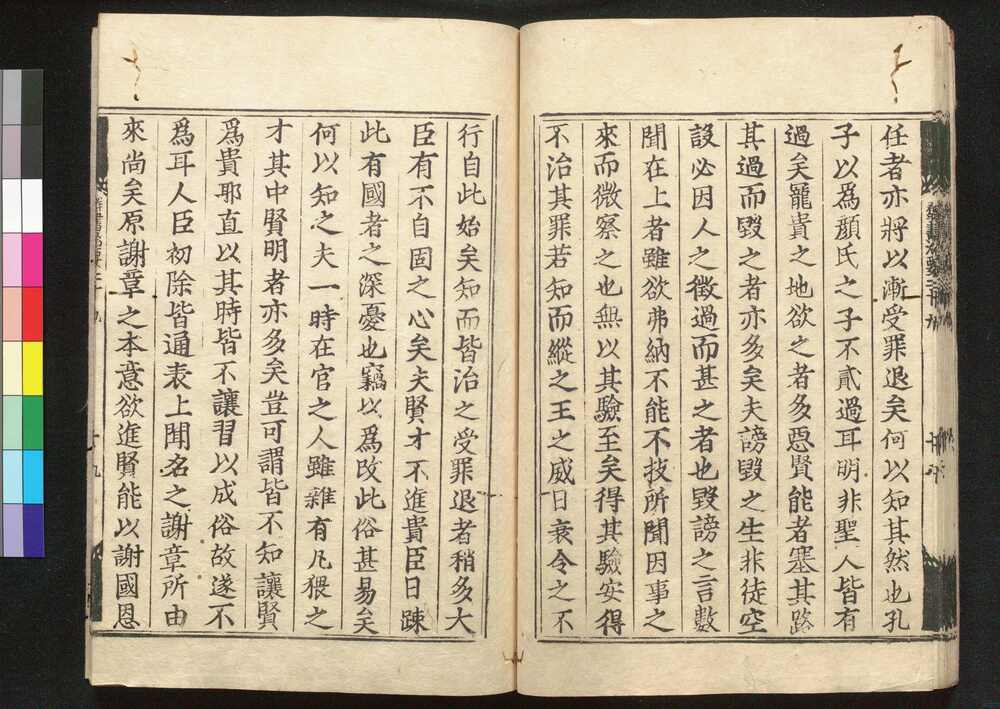 任者亦將以漸受罪退矣何以知其然也孔
子以爲顏氏之子不貳過耳明非聖人皆有
過矣寵貴之地欲之者多惡賢能者塞其路
其過而毀之者亦多矣夫謗毀之生非徒空
設必因人之微過而甚之者也毀謗之言數
聞在上者雖欲弗納不能不技所聞因事之
來而微察之也無以其驗至矣得其驗安得
不治其罪若知而縱之王之威日衰令之不
行自此始矣知而皆治之受罪退者稍多大
臣有不自固之心矣夫賢才不進貴臣日踈
此有國者之深憂也竊以爲改此俗甚易矣
何以知之夫一時在官之人雖雜有凡猥之
才其中賢明者亦多矣豈可謂皆不知讓賢
爲貴耶直以其時皆不讓習以成俗故遂不
爲耳人臣初除皆通表上聞名之謝章所由
來尚矣原謝章之本意欲進賢能以謝國恩